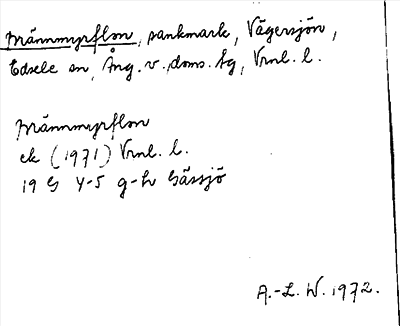 Männmyrflon, sankmark, Vägersjön,
Edsele sn, Ång. v. doms. tg, Vrnl. l.
Männmyrflon
ek (1971) Vrnl. l.
19 G 4-5 g-h Gässjö
A.-L. W. 1972.